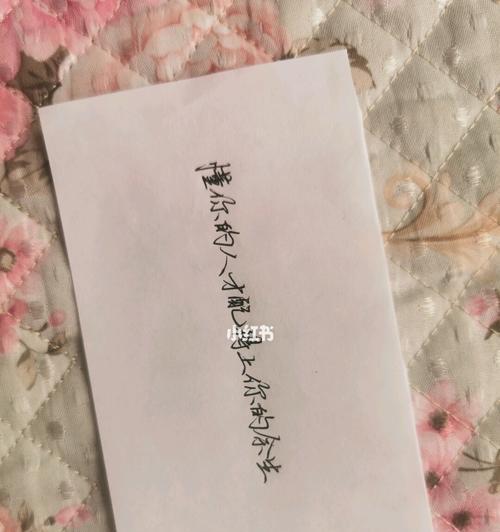 懂你的人才配得上你的余生
小红书